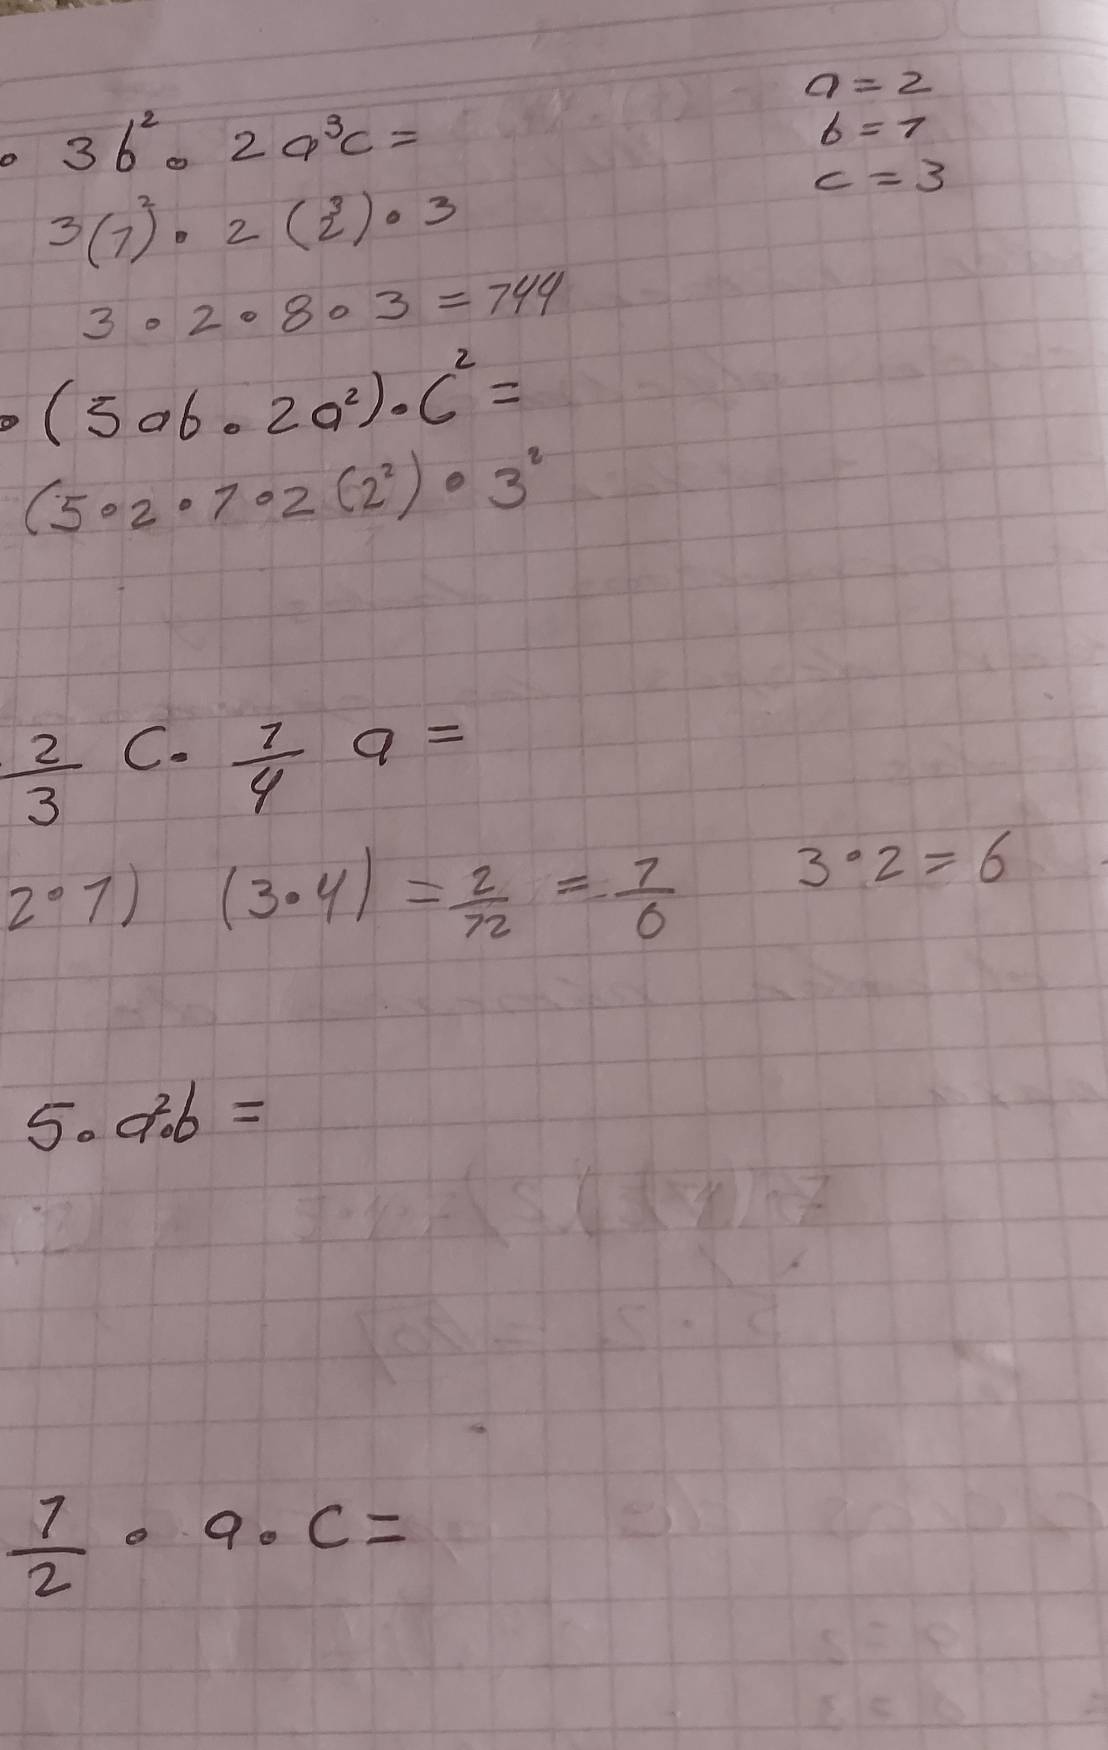 a = 2
b = 1
c = 3
• 3b² • 2a³c =
3(1)² • 2 (2³) • 3
3 • 2 • 8 • 3 = 144
• (5ab • 2a²) • c² =
(5 • 2 • 1 • 2 (2²) • 3²
2/3 c • 1/4 a =
2 • 1) (3 • 4) = 2/12 = 1/6 3 • 2 = 6
5 • a² • b =
1/2 • a • c =